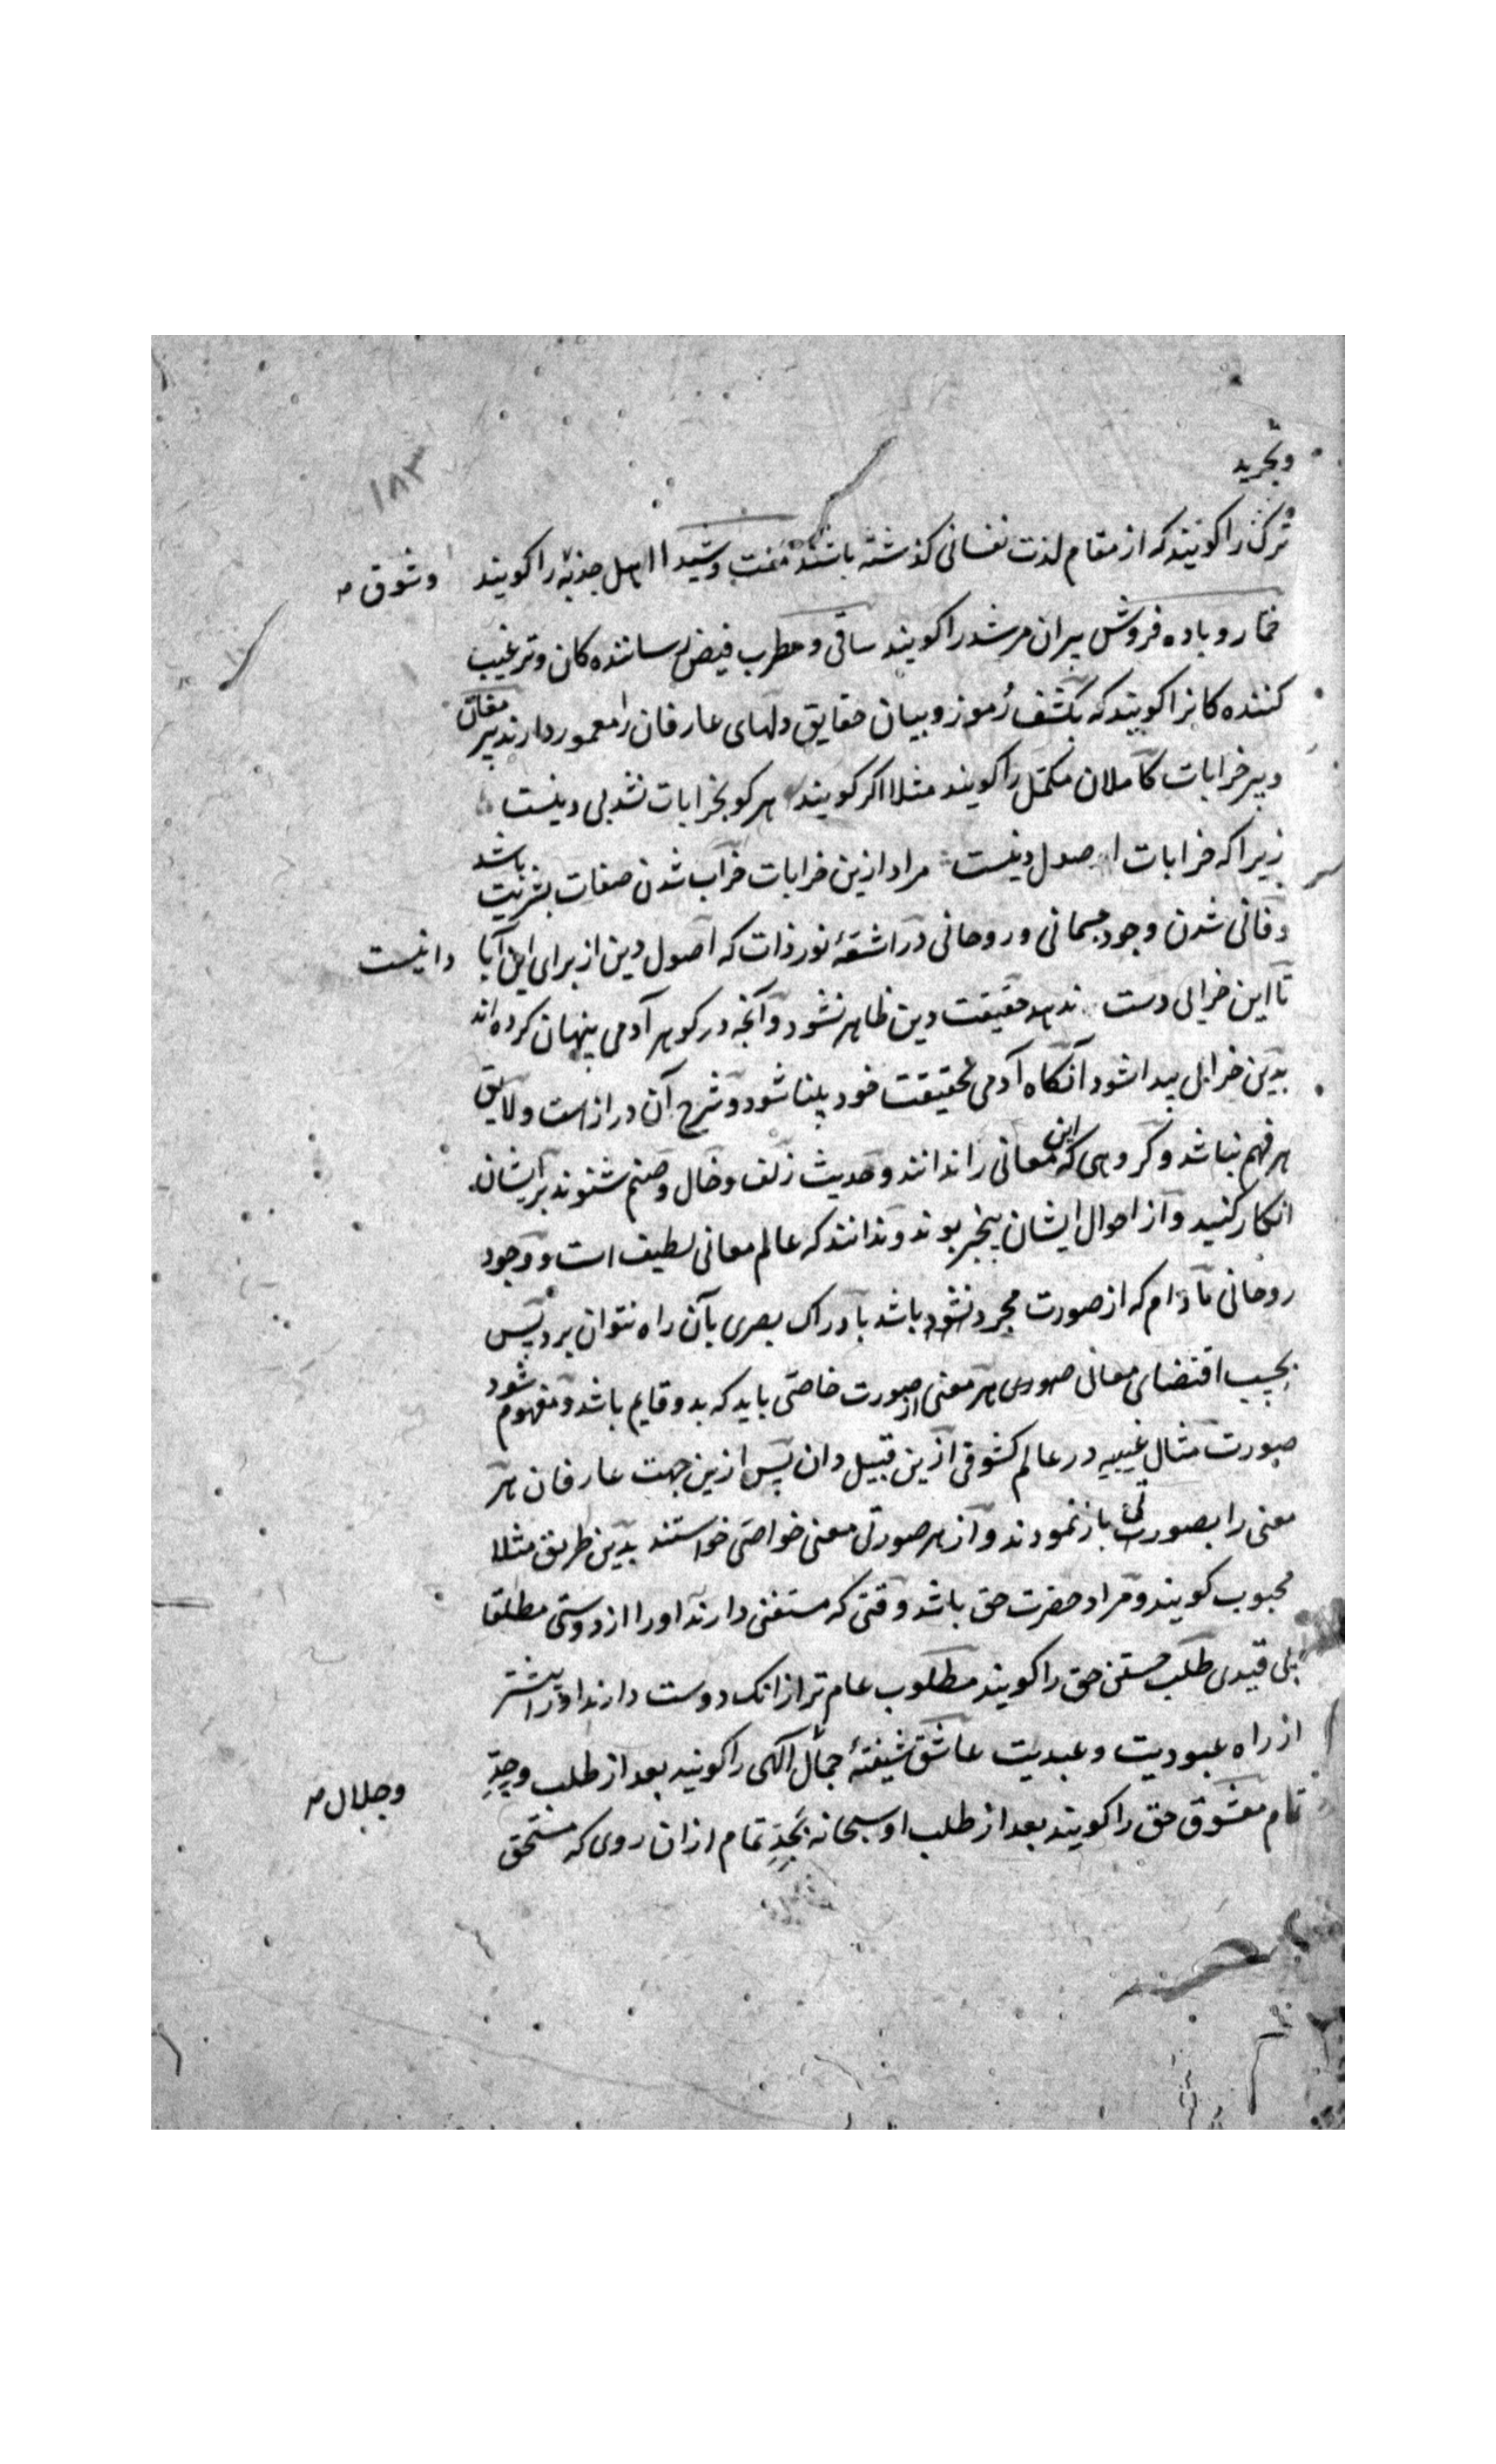 وتجرید
۱۸۳
ترک را کویند که از مقام لذت نفسانی کذشته باشند وشیدا اهل جذبه را کویند وشوق
خمار و باده فروش پیران مرشد را کویند ساقی و مطرب فیض رسانندہ کان و ترغیب
کننده کانرا کویند که بکشف رُموز و بیان حقایق دلهای عارفان را معمور دارند پیر مغان
وپیر خرابات کاملان مکمّل را کویند مثلا اکر کویند هر کو بخرابات نشد بی دینست
زیرا که خرابات اصول دینست مراد ازین خرابات خراب شدن صفات بشریت باشد
وفانی شدن وجود جسمانی و روحانی در اشعّهٔ نور ذات که اصول دین از برای این آبا وانیست
تا این خرابی دست ندهد حقیقت دین ظاهر نشود وآنچه در کوهر آدمی پنهان کرده‌اند
بدین خرابی پیدا شود آنکاه آدمی بحقیقت خود بینا شود و شرح آن دراز است و لایق
هر فهم نباشد و کروهی که این معانی را ندانند و حدیث زلف و خال و صنم شنوند بر ایشان
انکار کنند و از احوال ایشان بیخبر بوند و ندانند که عالم معانی لطیف است و وجود
روحانی مادام که از صورت مجرد نشود باشد بادراک بصری بآن راه نتوان برد پس
بحسب اقتضای معانی صوری هر معنی از صورت خاصّی باید که بدو قایم باشد و مفهوم شود
صورت مثال غیبیه در عالم کشوفی ازین قبیل دان پس ازین جهت عارفان هر
معنی را بصورتی باز نمودند و از هر صورتی معنی خواصّی خواستند بدین طریق مثلا
محبوب کویند و مراد حضرت حق باشد وقتی که مستغنی دارند او را از دوستی مطلقا
بی قیدی طلب مستغنی حق را کویند مطلوب عام تر از انک دوست دارند او را بیشتر
از راه عبودیت و عبدیت عاشق شیفتهٔ جمال الهی را کویند بعد از طلب وجِدِّ وجلال
تمام معشوق حق را کویند بعد از طلب او سبحانه بجِدِّ تمام از ان روی که مستحق